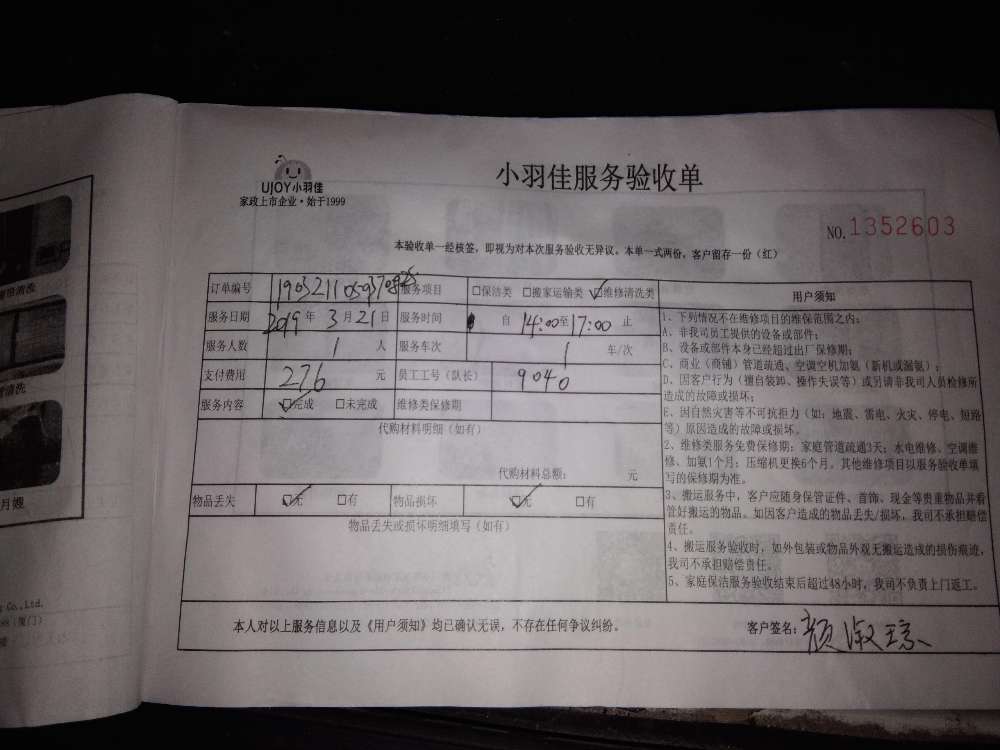 UJOY小羽佳
家政上市企业·始于1999
小羽佳服务验收单
NO.1352603
本验收单一经核签，即视为对本次服务验收无异议。本单一式两份，客户留存一份（红）
订单编号 服务项目 □保洁类 □搬家运输类 ☑维修清洗类
服务日期 2019年 3月21日 服务时间 自 14:00至17:00 止
服务人数 1 人 服务车次 1 车/次
支付费用 276 元 员工工号（队长） 9040
服务内容 ☑完成 □未完成 维修类保修期
代购材料明细（如有）
代购材料总额： 元
物品丢失 ☑无 □有 物品损坏 ☑无 □有
物品丢失或损坏明细填写（如有）
用户须知
1、下列情况不在维修项目的维保范围之内：
A、非我司员工提供的设备或部件；
B、设备或部件本身已经超过出厂保修期；
C、商业（商铺）管道疏通、空调空机加氨（新机或漏氨）；
D、因客户行为（擅自装卸、操作失误等）或另请非我司人员检修所
造成的故障或损坏；
E、因自然灾害等不可抗拒力（如：地震、雷电、火灾、停电、短路
等）原因造成的故障或损坏。
2、维修类服务免费保修期：家庭管道疏通3天；水电维修、空调维
修、加氨1个月；压缩机更换6个月。其他维修项目以服务验收单填
写的保修期为准。
3、搬运服务中，客户应随身保管证件、首饰、现金等贵重物品并看
管好搬运的物品。如因客户造成的物品丢失/损坏，我司不承担赔偿
责任。
4、搬运服务验收时，如外包装或物品外观无搬运造成的损伤痕迹，
我司不承担赔偿责任。
5、家庭保洁服务验收结束后超过48小时，我司不负责上门返工。
本人对以上服务信息以及《用户须知》均已确认无误，不存在任何争议纠纷。
客户签名：颜淑琼
清洗
月嫂
Co.,Ltd.
（厦门）